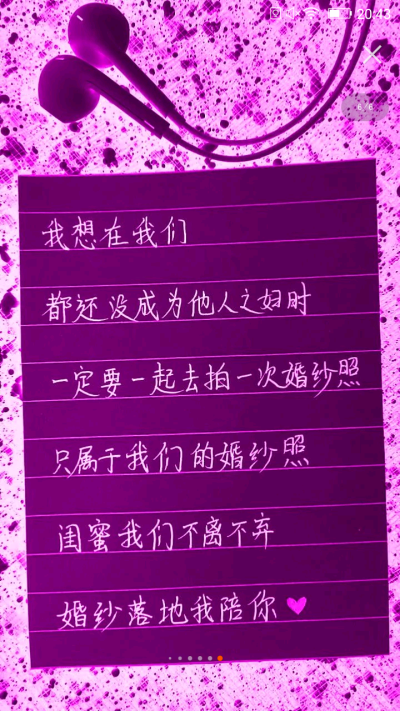 20:43
6/6
我想在我们
都还没成为他人之妇时
一定要一起去拍一次婚纱照
只属于我们的婚纱照
闺蜜我们不离不弃
婚纱落地我陪你♥